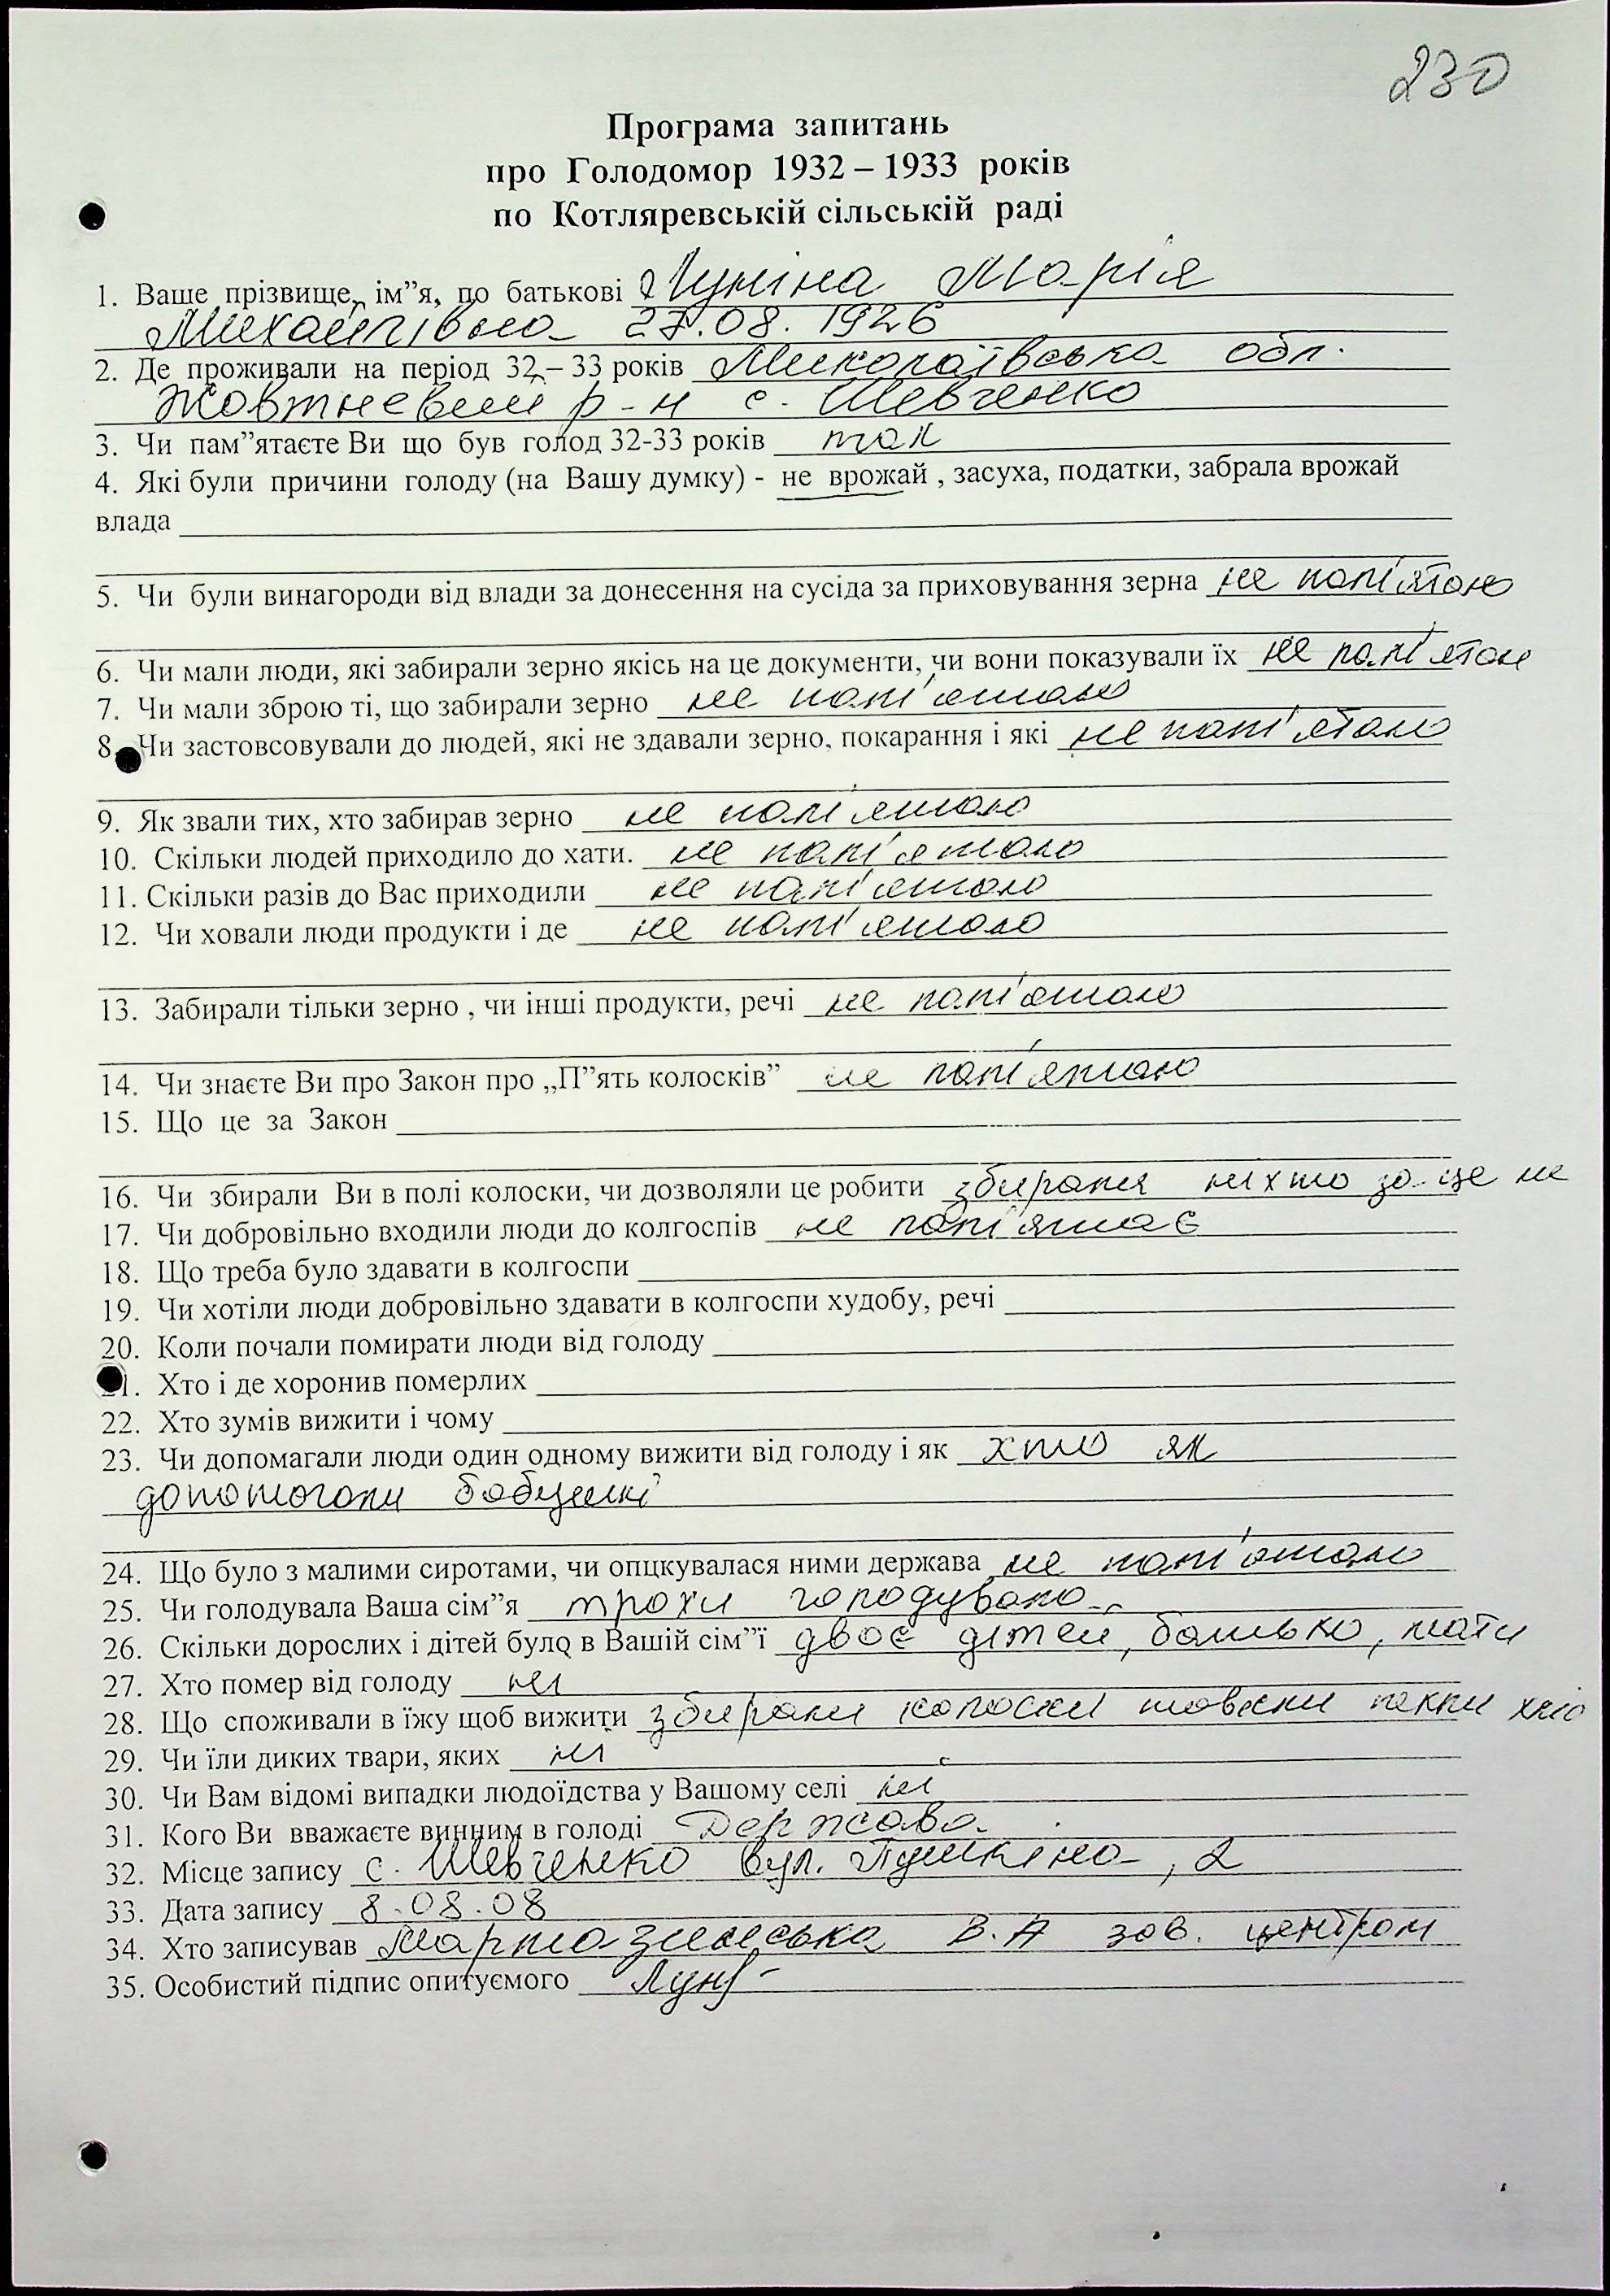 230
Програма запитань
про Голодомор 1932 – 1933 років
по Котляревській сільській раді
1. Ваше прізвище, ім"я, по батькові Луніна Марія
Михайлівна 27.08. 1926
2. Де проживали на період 32 – 33 років Миколаївська обл.
Жовтневий р-н с. Шевченко
3. Чи пам"ятаєте Ви що був голод 32-33 років так
4. Які були причини голоду (на Вашу думку) - не врожай , засуха, податки, забрала врожай
влада
5. Чи були винагороди від влади за донесення на сусіда за приховування зерна не пам'ятаю
6. Чи мали люди, які забирали зерно якісь на це документи, чи вони показували їх не пам'ятає
7. Чи мали зброю ті, що забирали зерно не пам'ятаю
8. Чи застовсовували до людей, які не здавали зерно, покарання і які не пам'ятаю
9. Як звали тих, хто забирав зерно не пам'ятаю
10. Скільки людей приходило до хати. не пам'ятаю
11. Скільки разів до Вас приходили не пам'ятаю
12. Чи ховали люди продукти і де не пам'ятаю
13. Забирали тільки зерно , чи інші продукти, речі не пам'ятаю
14. Чи знаєте Ви про Закон про „П"ять колосків” не пам'ятаю
15. Що це за Закон
16. Чи збирали Ви в полі колоски, чи дозволяли це робити збирали ніхто за це не
17. Чи добровільно входили люди до колгоспів не пам'ятає
18. Що треба було здавати в колгоспи
19. Чи хотіли люди добровільно здавати в колгоспи худобу, речі
20. Коли почали помирати люди від голоду
21. Хто і де хоронив померлих
22. Хто зумів вижити і чому
23. Чи допомагали люди один одному вижити від голоду і як хто як
допомогали бабушкі
24. Що було з малими сиротами, чи опцкувалася ними держава не пам'ятаю
25. Чи голодувала Ваша сім"я трохи голодувала
26. Скільки дорослих і дітей було в Вашій сім"ї двоє дітей, батько, мати
27. Хто помер від голоду ні
28. Що споживали в їжу щоб вижити збирали колоски товкли пекли хліб
29. Чи їли диких твари, яких ні
30. Чи Вам відомі випадки людоїдства у Вашому селі ні
31. Кого Ви вважаєте винним в голоді Держава
32. Місце запису с. Шевченко вул. Пушкіна, 2
33. Дата запису 8.08.08
34. Хто записував В.А зав. центром
35. Особистий підпис опитуємого Лун